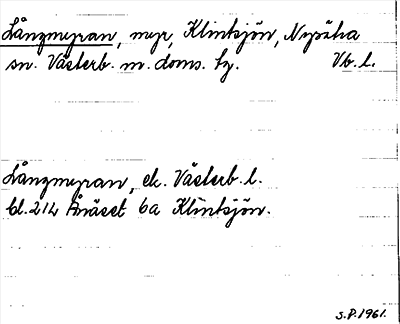 Långmyran, myr, Klintsjön, Nysätra
sn. Västerb. m. doms. tg. Vb. l.
Långmyran, ek. Västerb. l.
bl. 214 Ånäset 6a Klintsjön.
S.P. 1961.